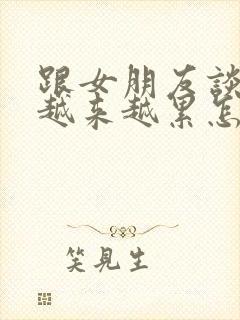 跟女朋友談
越来越累怎
笑見生